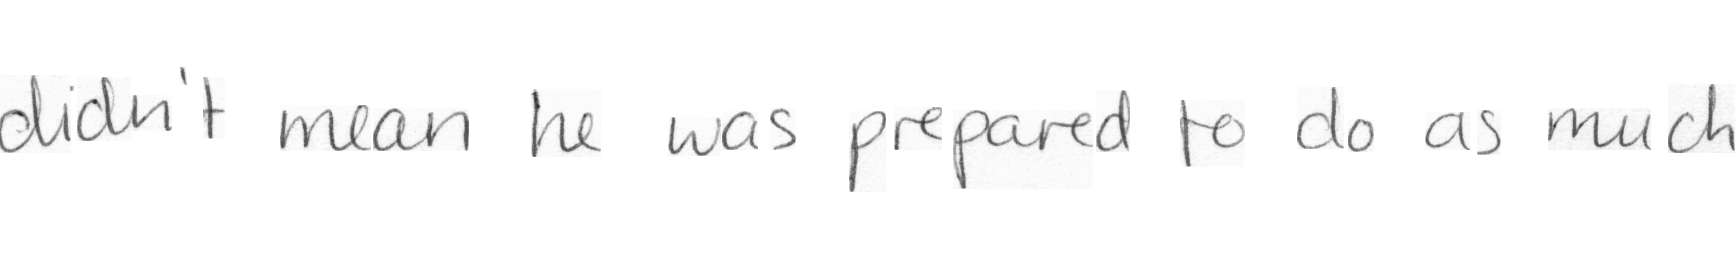 didn't mean he was prepared to do as much